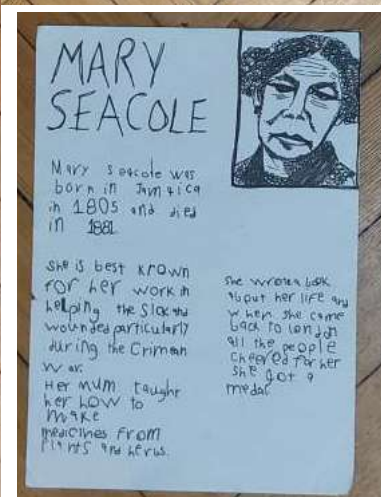 MARY
SEACOLE
Mary Seacole was
born in Jamaica
in 1805 and died
in 1881
She is best known
for her work in
helping the sick and
wounded particularly
during the Crimean
War.
Her mum taught
her how to
make
medicines from
plants and herbs.
She wrote a book
about her life and
when she came
back to london
all the people
cheered for her
she got a
medal